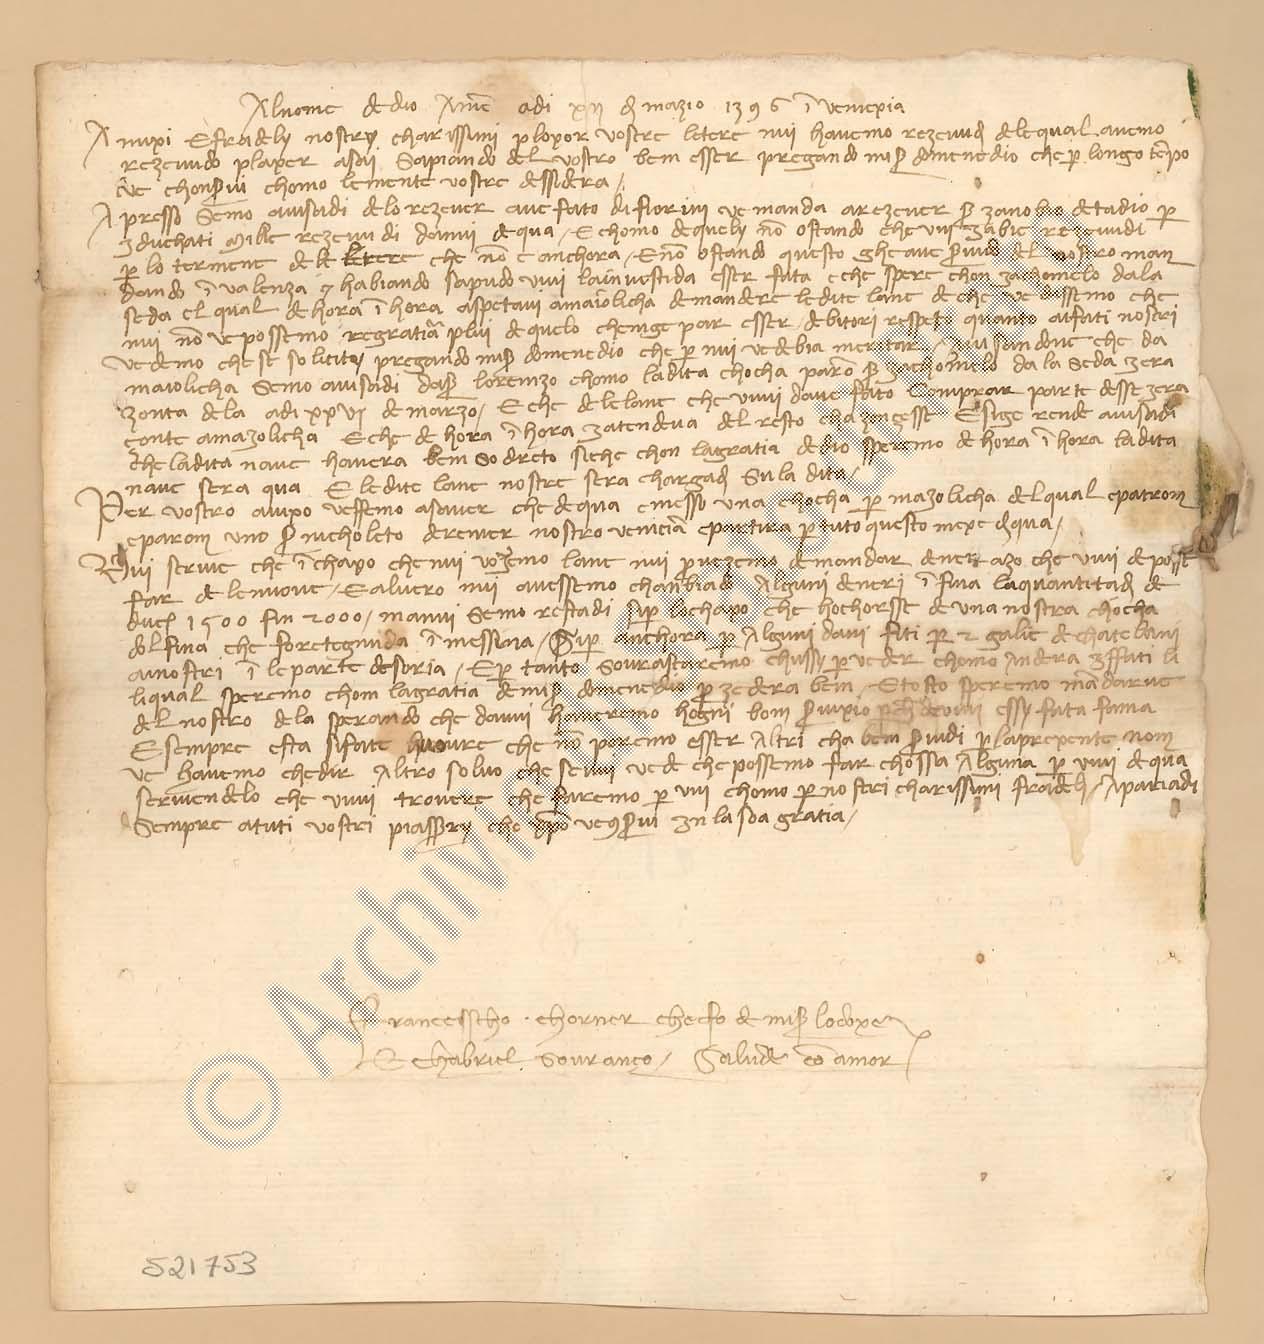 Al nome de dio Ame adi xii d marzio 1396 i veniexia
Amixi e fradely nostry charissimi p lo poxor vostre letere nui havemo rezevud de le qual avemo
rezevudo plaxer asaii sapiando del vostro bem esser pregando mis domenedio che p longo tepo
ve chonservi chomo le mente vostre dessidera /
Apresso semo avisadi de lo rezever ave fato di fiorini ve manda a rezever s zanobio de tadio p
duchati mille rezevudi da nui de qua / E chomo de quely no ostando che vui abie rezevudi
p lo termene de le letere che no e anchora / E no ostando questo ghe ave del nostro man
dando i valenza habiando sapudo vui la investida esser fata e che spere chon zachomelo da la
seda el qual de hora i hora aspetavi a maiolicha de mandere le dite lane de che ve dissemo che
nui no ve possemo regratia plui de quelo che ne par esser debitori respeto quanto ai fati nostri
vedemo che se solicity pregando mis domenedio che p nui ve debia meritar / avisandove che da
maiolicha semo avisadi da s lorenzo chomo la dita chocha paro s zachomelo da la seda zera
zonta de la adi xxvi de marzo / E che de le lane che vuui dave fato comprar parte desse zera
zonte a mazolicha E che de hora i hora atendeva del resto E sige rende avisadi
che la dita nave havera bem so dreto siche chon la gratia de dio speremo de hora i hora la dita
nave sera qua E le dite lane nostre sera chargad su la dita /
Per vostro avixo vessemo asaver che de qua e messo una chocha p mazolicha del qual e patrom
e parom uno s nicholeto de river nostro venicia e partira p tuto questo mexe d qua /
Vui scrive che i chapo che nui voremo lane nui provezemo de mandar deneri azo che vuui deposse
far de le nuove / E al vero nui avessemo chanbiado alguni deneri i fina la quantitad de
duc 1500 fin 2000 / ma nui semo restadi si p lo chaxo che hochorsse de una nostra chocha
dolfina che fo retegnuda i messina / Si p anchora p alguni dani fiti p 2 galie de chatelani
a nostri i le parte de soria / E p tanto sourastaremo chussy p veder chomo andera i ffati li
li qual speremo chom la gratia de mis domenedio p zedera bem / E tosto speremo madarve
del nostro de la sperando che da vui haveremo hogni bom servixio p de vuui essy fata fama
E sempre esta si fate huovre che no poremo esser altri cha bem servidi p la prexente nom
ve havemo che dir altro salvo che se vui vede che possemo far chossa alguna p vuui de qua
scrivendelo che vuui trovere che faremo p vui chomo p nostri charissimi fradeli / apariadi
sempre a tuti vostri piassery che xpo ve servi in la soa gratia /
Francescho chorner che fo de mis lodoxe
E Ghabriel souranzo / Salude co amor
521753